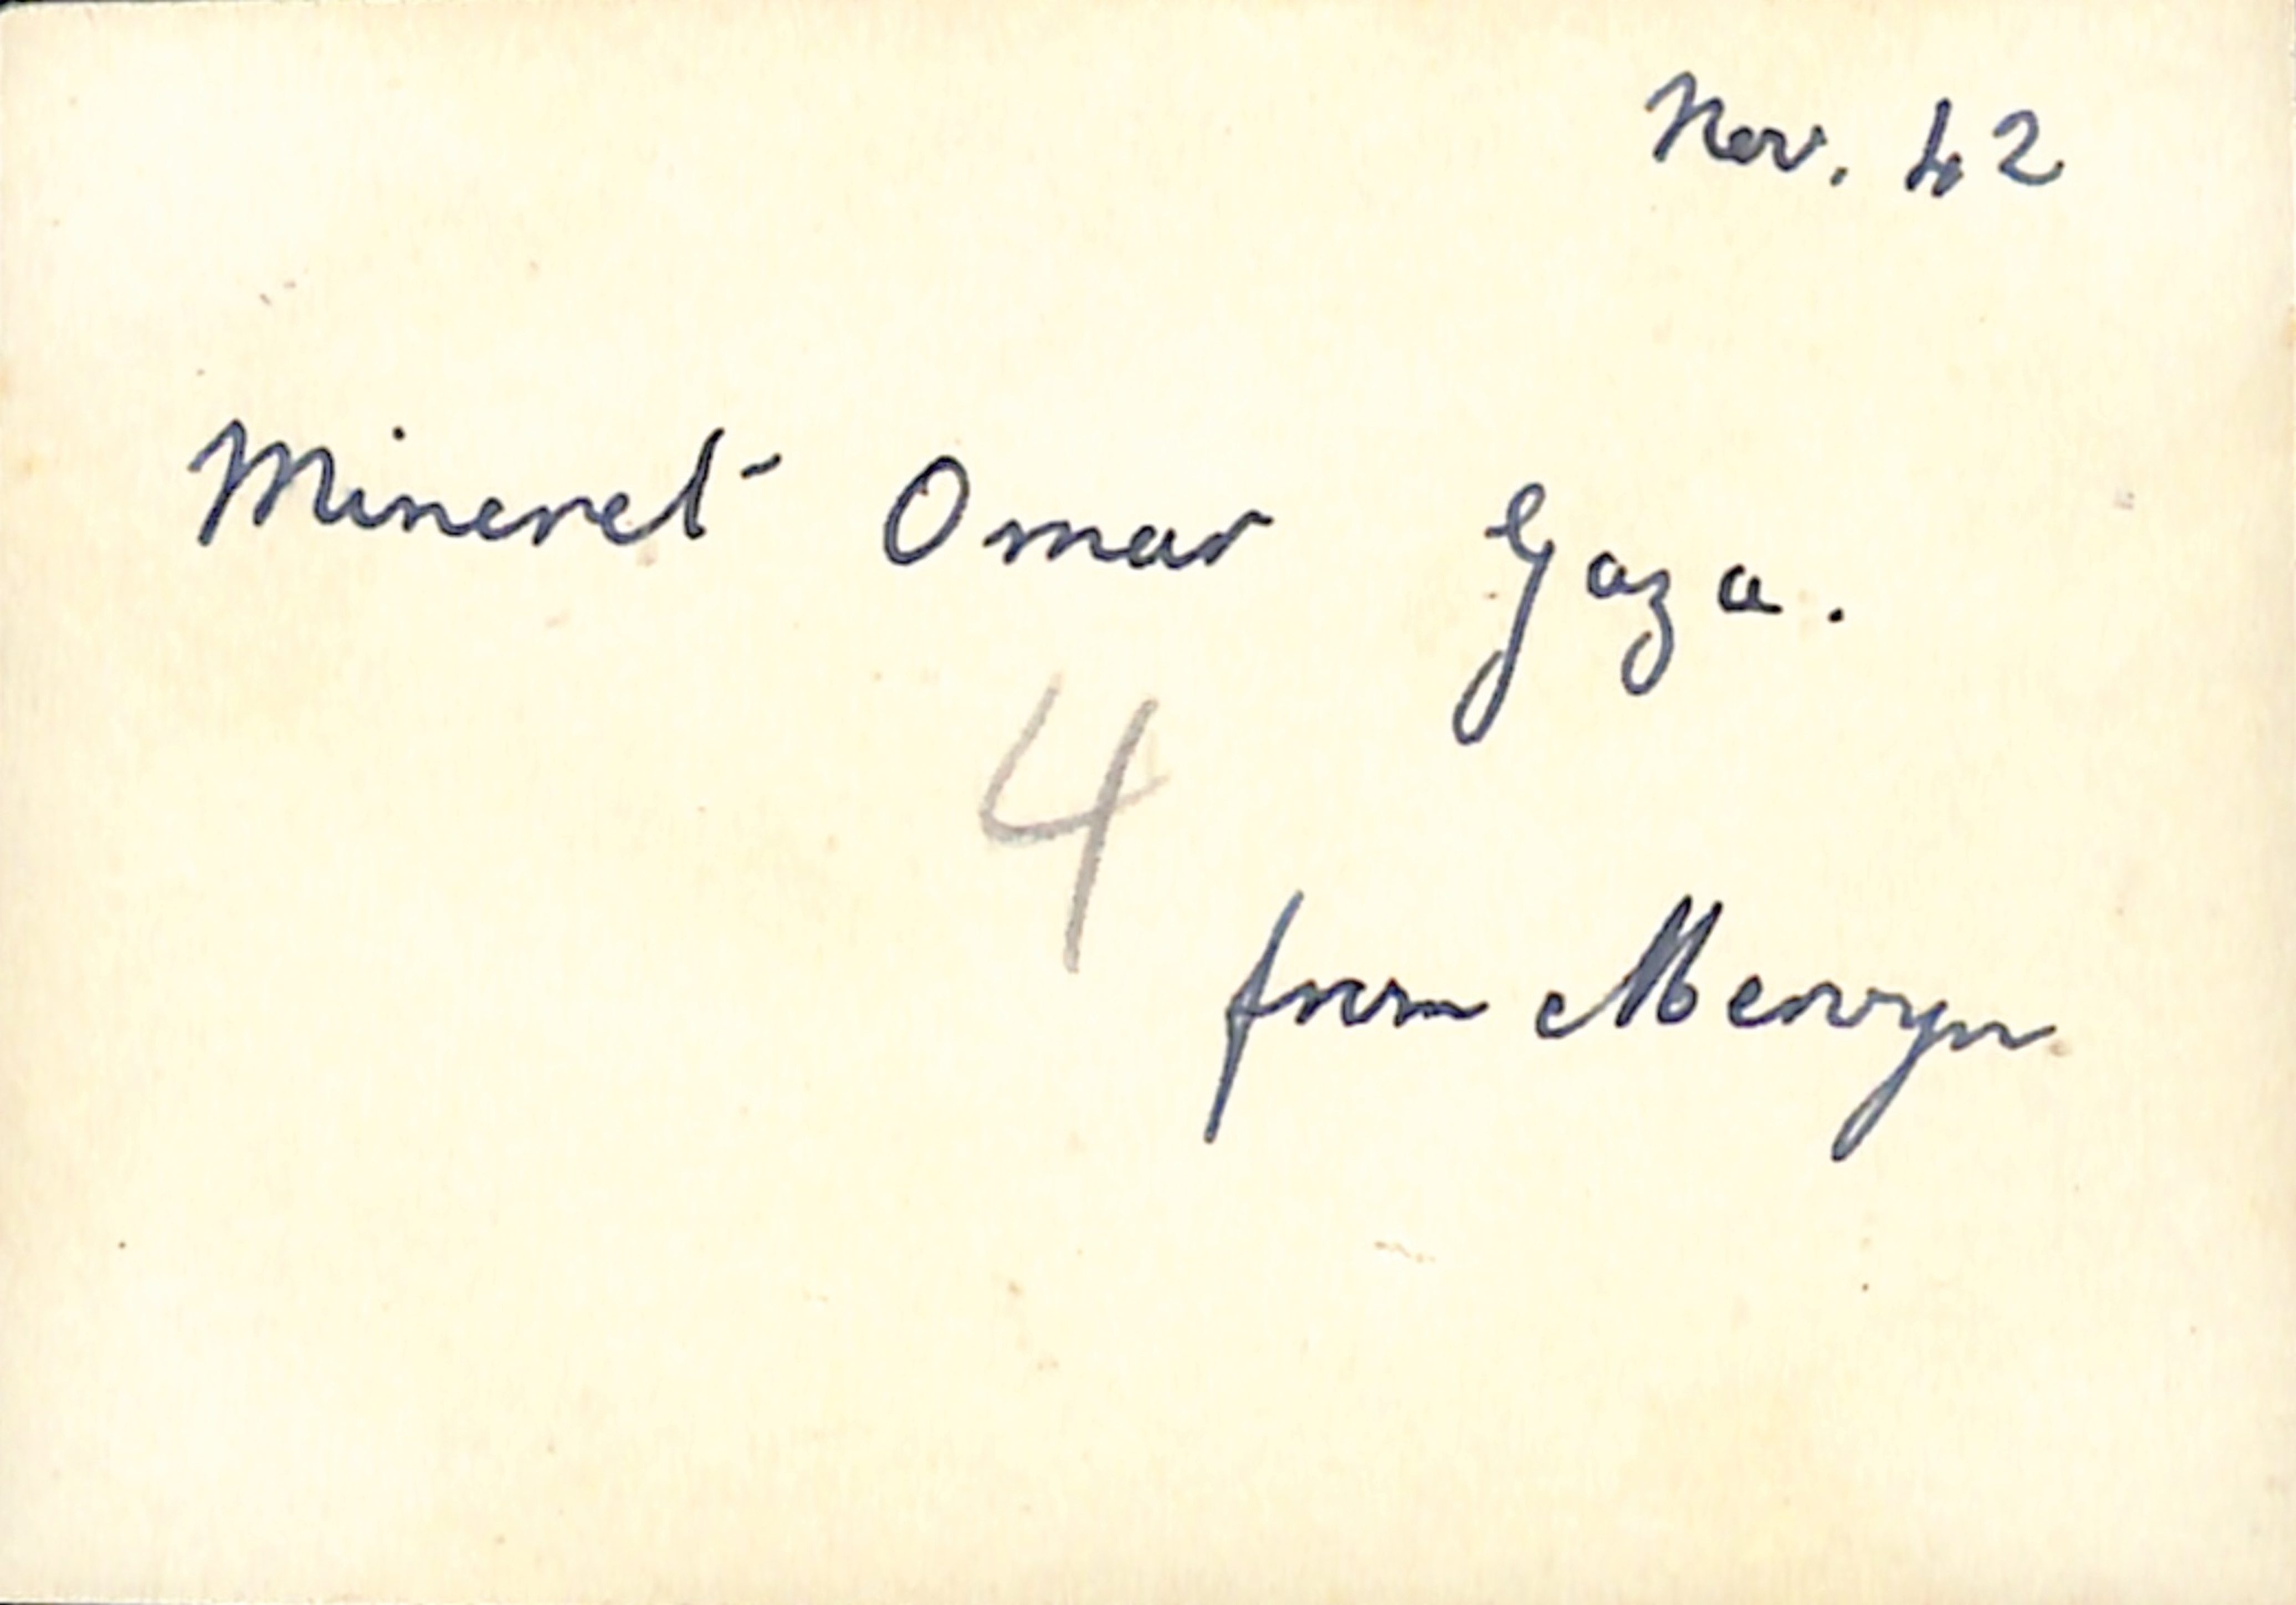 Nov. 42
Mineret Omar Gaza.
4
from Mervyn